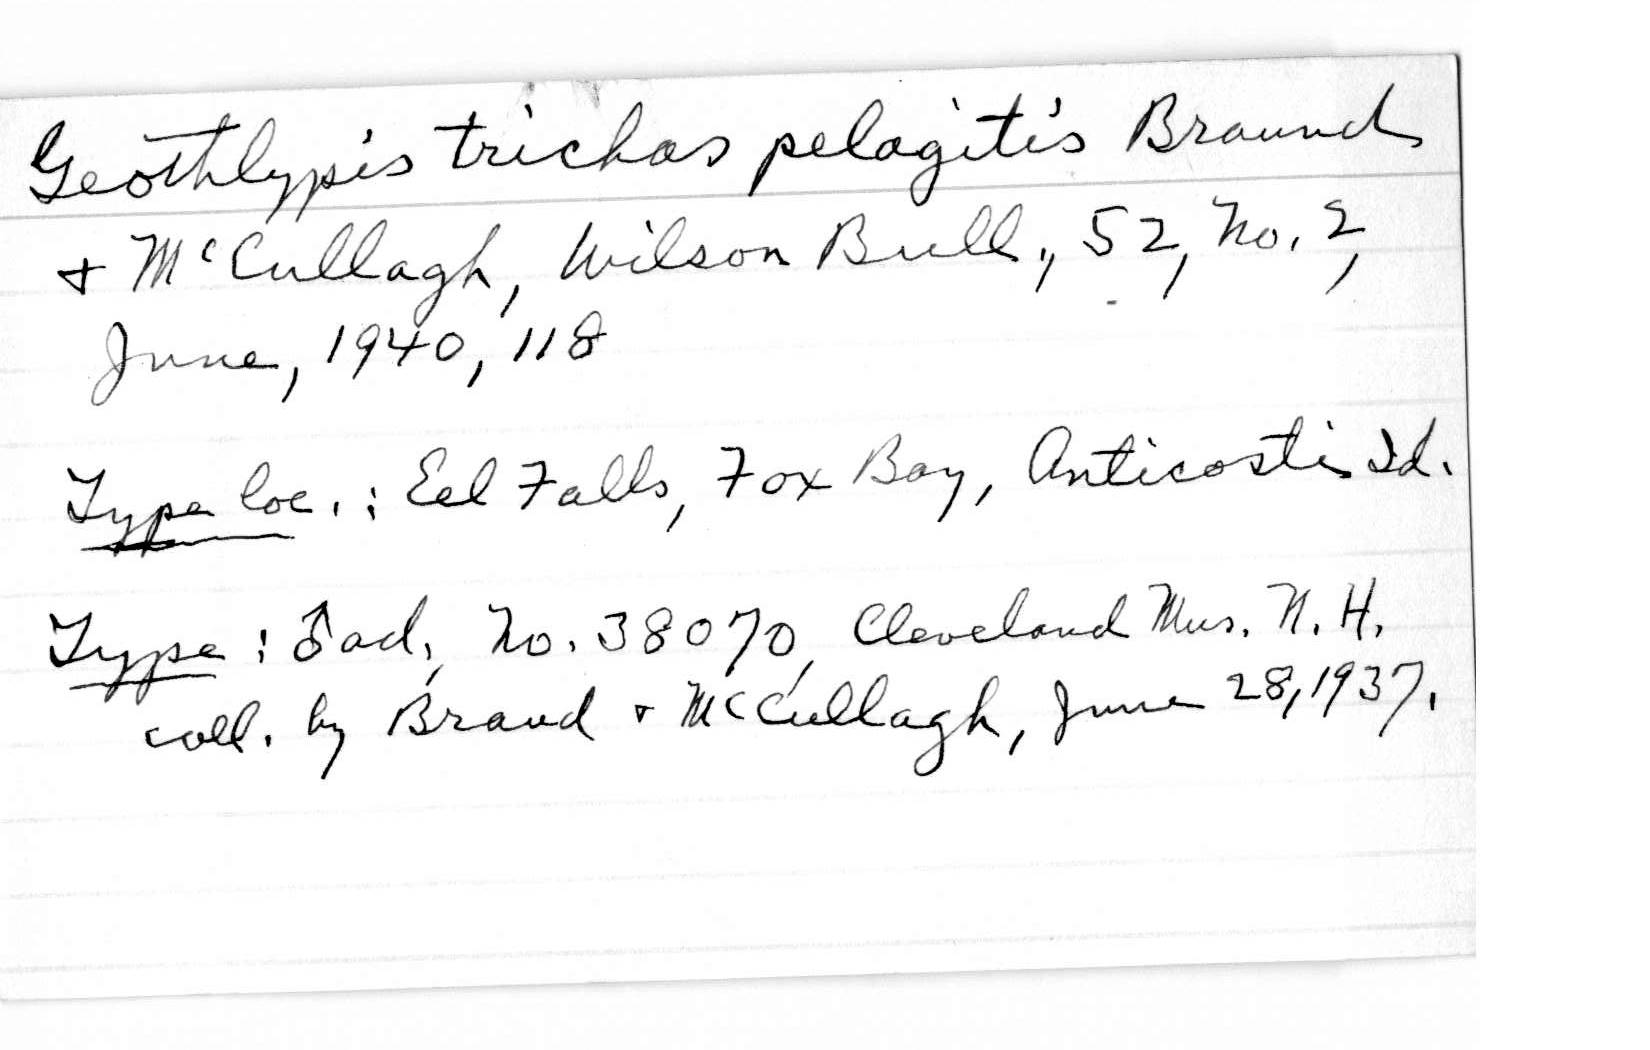 Geothlypis trichas pelagitis Braund
& McCullagh, Wilson Bull., 52, No. 2,
June, 1940, 118
Type loc. : Eel Falls, Fox Bay, Anticosti Id.
Type : ♂ ad., No. 38070, Cleveland Mus. N. H.
coll. by Braud & McCullagh, June 28, 1937.